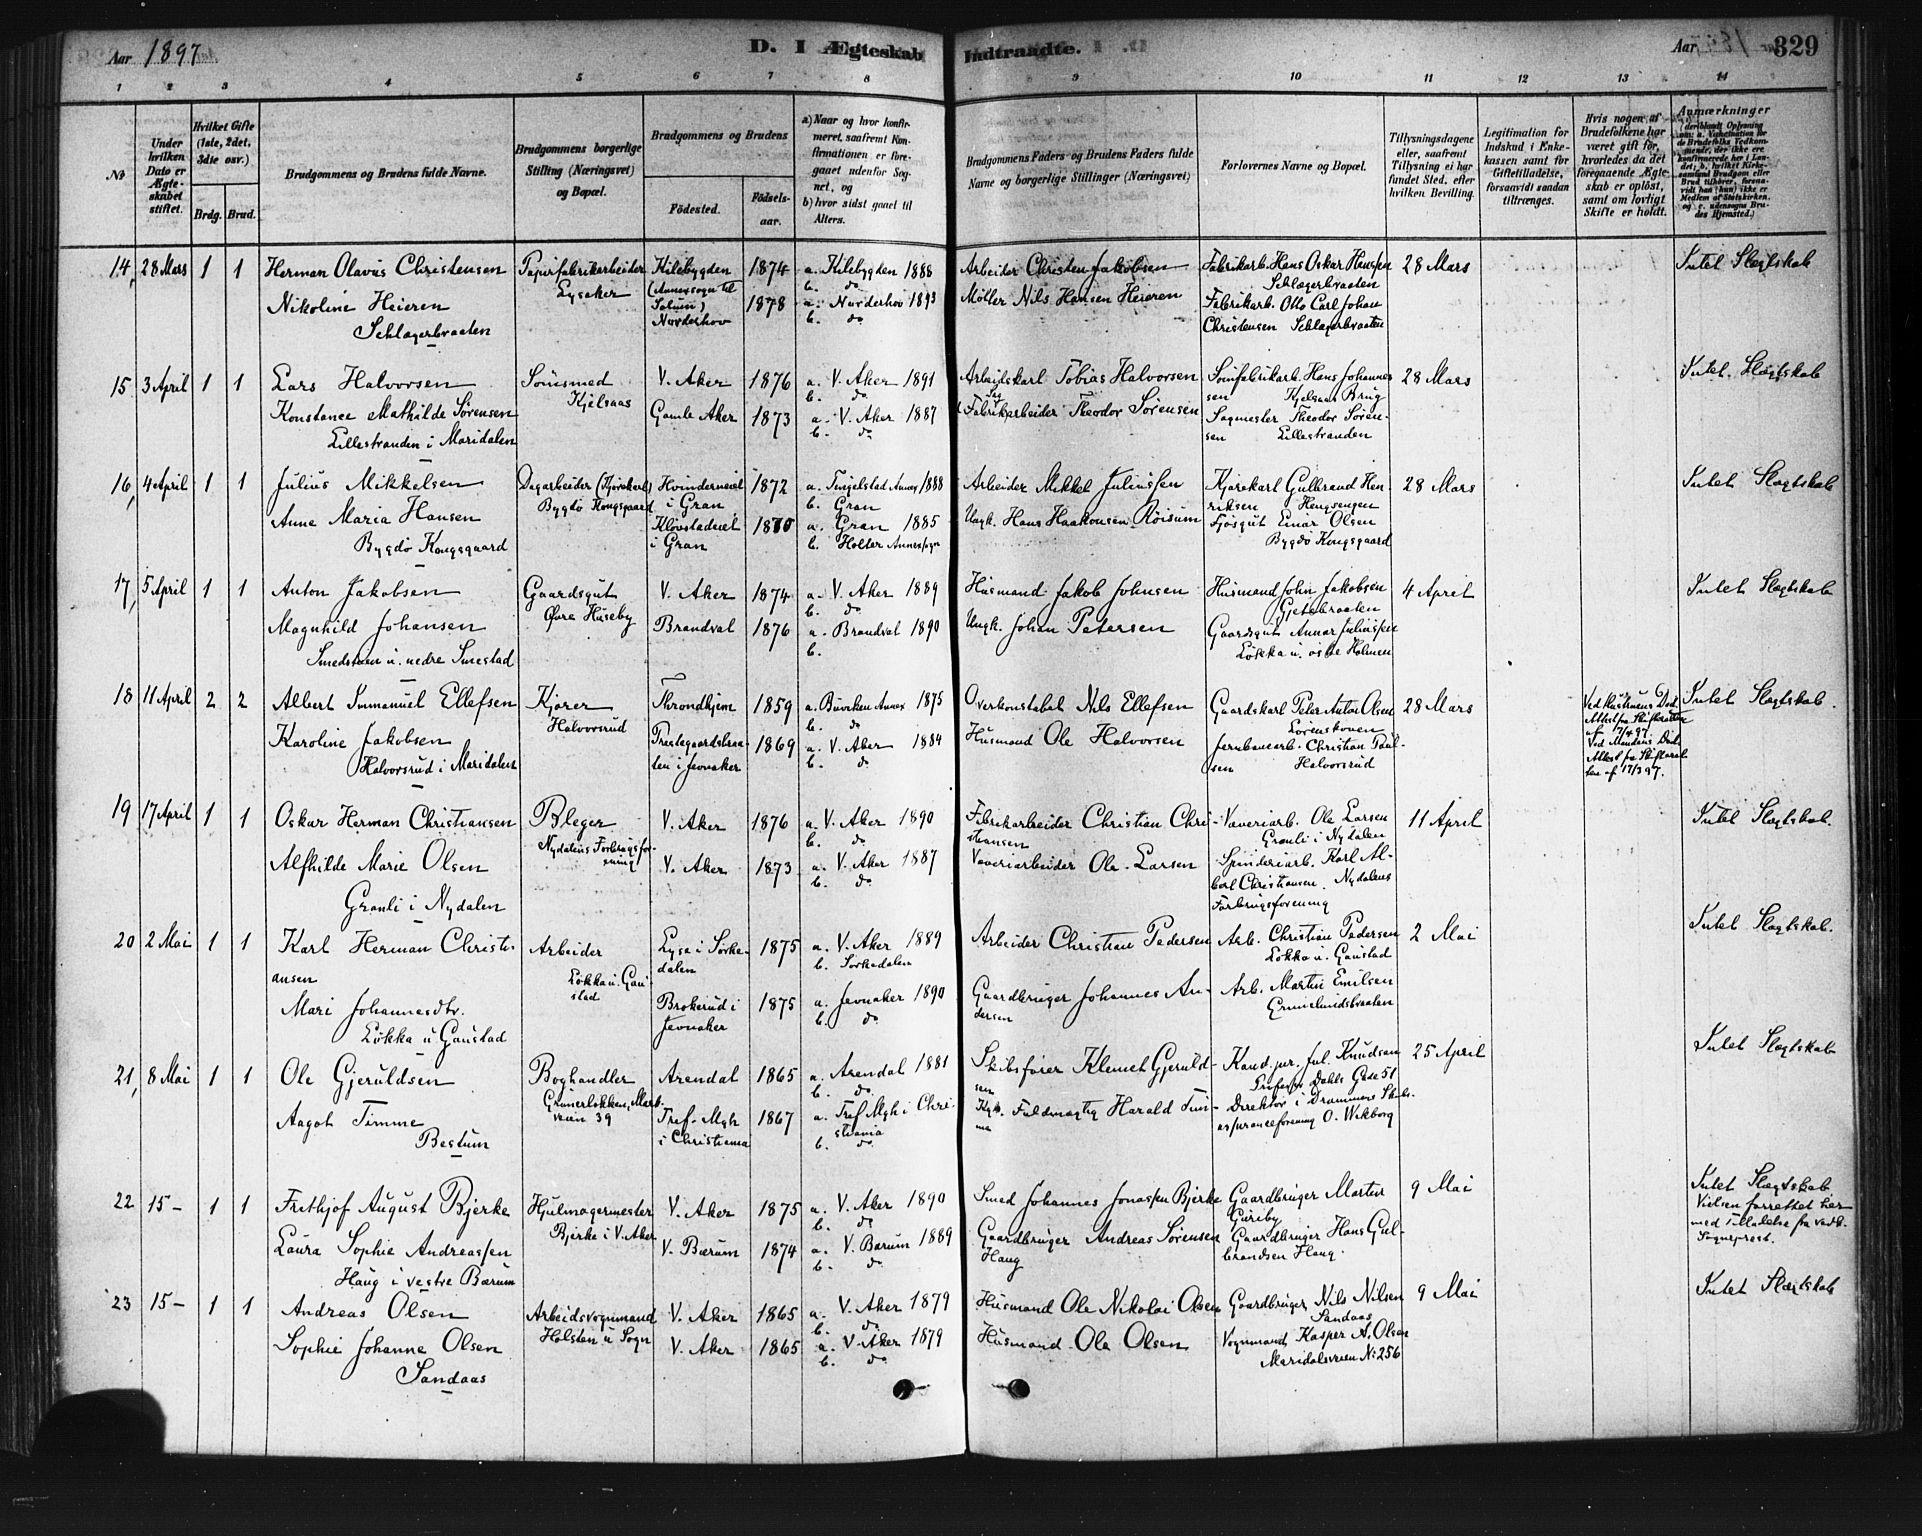 Aar 1897 D. I Ægteskab Indtraadte. Aar 329
1 2 3 4 5 6 7 8 9 10 11 12 13 14
No
Under hvilken Dato er Ægteskabet stiftet.
Hvilket Gifte (1ste, 2det, 3die osv.)
Brdg. Brud.
Brudgommens og Brudens fulde Navne.
Brudgommens borgerlige Stilling (Næringsvei) og Bopæl.
Brudgommens og Brudens
Fødested. Fødselsaar.
a) Naar og hvor konfirmeret, saafremt Konfirmationen er foregaaet udenfor Sognet, og
b) hvor sidst gaaet til Alters.
Brudgommens Faders og Brudens Faders fulde Navne og borgerlige Stillinger (Næringsvei)
Forlovernes Navne og Bopæl.
Tillysningsdagene eller, saafremt Tillysning ei har fundet Sted, efter hvilken Bevilling.
Legitimation for Indskud i Enkekassen samt for Giftetilladelse, forsaavidt saadan tiltrænges.
Hvis nogen af Brudefolkene har været gift før, hvorledes da det foregaaende Ægteskab er opløst, samt om lovligt Skifte er holdt.
Anmærkninger
14, 28 Mars 1 1 Herman Olavus Christensen Papirfabrikarbeider Kilebygden 1874 a. Kilebygden 1888 Arbeider Christen Jakobsen Fabrikarb. Hans Oskar Hanssen 28 Mars Intet Slægtskab
Lysaker (Annexsogn til b. do Schlagerbraaten
Nikoline Heieren Solum) 1878 a. Norderhov 1893 Møller Nils Hansen Heieren Fabrikarb. Otto Carl Johan
Schlagerbraaten Norderhov b. do Christensen Schlagerbraaten
15 3 April 1 1 Lars Halvorsen Sømsmed V. Aker 1876 a. V. Aker 1891 Arbeidskarl Tobias Halvorsen Sømfabrikarb. Hans Johannes 28 Mars Intet Slægtskab
Kjelsaas b. do sen Kjelsaas Brug
Konstance Mathilde Sørensen Gamle Aker 1873 a. V. Aker 1887 Fabrikarbeider Theodor Sørensen Sagmester Theodor Søren-
Lillestranden i Maridalen b. do sen Lillestranden
16, 4 April 1 1 Julius Mikkelsen Dagarbeider (Kjørekarl) Hvinderneiet 1872 a. Tingelstad Annex 1888 Arbeider Mikkel Juliussen Kjørekarl Gulbrand Hen- 28 Mars Intet Slægtskab
Bygdø Kongsgaard i Gran b. Gran riksen Hengsengen
Anne Maria Hansen Kløvstadeiet 1870 a. Gran 1885 Ungk. Hans Haakonsen Røisum Fjøsgut Einar Olsen
Bygdø Kongsgaard i Gran b. Holter Annexsogn Bygdø Kongsgaard
17, 5 April 1 1 Anton Jakobsen Gaardsgut V. Aker 1874 a. V. Aker 1889 Husmand Jakob Johnsen Husmand John Jakobsen 4 April Intet Slægtskab
Øvre Huseby b. do Gjetebraaten
Magnhild Johansen Brandval 1876 a. Brandval 1890 Ungk. Johan Petersen Gaardsgut Annar Juliussen
Smedstuen u. nedre Smestad b. Løkka u. østre Holmen
18 11 April 2 2 Albert Immanuel Ellefsen Kjører Throndhjem 1859 a. Buviken Annex 1875 Overkonstabel Nils Ellefsen Gaardskarl Peter Anton Olsen 28 Mars Ved Hustruens Død. Intet Slægtskab.
Halvorsrud b. do Lørenskoven Attest fra Skifteretten
Karoline Jakobsen Præstegaardsbraa- 1869 a. V. Aker 1884 Husmand Ole Halvorsen Jernbanearb. Christian Paul- af 17/4 97.
Halvorsrud i Maridalen ten i Jevnaker b. do sen Halvorsrud Ved Mandens Død
Attest fra Skifteret-
ten af 17/3 97.
19 17 April 1 1 Oskar Herman Christiansen Bleger V. Aker 1876 a. V. Aker 1890 Fabrikarbeider Christian Chri- Væveriarb. Ole Larsen 11 April Intet Slægtskab.
Nydalens Forbrugsfor- b. do stiansen Granli i Nydalen
ening
Alfhilde Marie Olsen V. Aker 1873 a. V. Aker 1887 Væveriarbeider Ole Larsen Spinderiarb. Karl Al-
Granli i Nydalen b. do bert Christiansen. Nydalens
Forbrugsforening
20 2 Mai 1 1 Karl Herman Christi- Arbeider Lysa i Sørke- 1875 a. V. Aker 1889 Arbeider Christian Pedersen Arb. Christian Pedersen 2 Mai Intet Slægtskab.
ansen Løkka u. Gau- dalen b. Sørkedalen Løkka u. Gaustad
stad
Mari Johannesdtr. Brokerud i 1875 a. Jevnaker 1890 Gaardbruger Johannes An- Arb. Martin Emilsen
Løkka u Gaustad Jevnaker b. do dersen
21, 8 Mai 1 1 Ole Gjeruldsen Boghandler Arendal 1865 a. Arendal 1881 Skibsfører Klemet Gjeruld- Kand. jur. Jul. Knudsen 25 April Intet Slægtskab
Grünerløkken, Mark- b. do sen Professor Dahls Gade 51
Aagot Timme veien 39 Tref. Mgh 1867 a. Tref Mgh i Chri- Fuldmægtig Harald Tim- Direktør i Drammens Skibs-
Bestum i Christiania stiania me assuranceforening O. Wiborg
b. do
22 15 - 1 1 Frithjof August Bjerke Hjulmagermester V. Aker 1875 a. V. Aker 1890 Smed Johannes Jonassen Bjerke Gaardbruger Morten 9 Mai Intet Slægtskab
Bjerke i V. Aker b. do Guriby Vielsen forrettet her
Laura Sophie Andreassen V. Bærum 1874 a. V. Bærum 1889 Gaardbruger Andreas Sørensen Gaardbruger Hans Gul- med Tilladelse fra vedk.
Haug i vestre Bærum b. do Haug brandsen Haug. Sognepræst.
23 15 - 1 1 Andreas Olsen Arbeidsvognmand V. Aker 1865 a. V. Aker 1879 Husmand Ole Nikolai Olsen Gaardbruger Nils Nilsen 9 Mai Intet Slægtskab
Holsten u Sogn b. do Sandaas
Sophie Johanne Olsen V. Aker 1865 a. V. Aker 1879 Husmand Ole Olsen Vognmand Kasper A. Olsen
Sandaas b. do Maridalsveien No 256